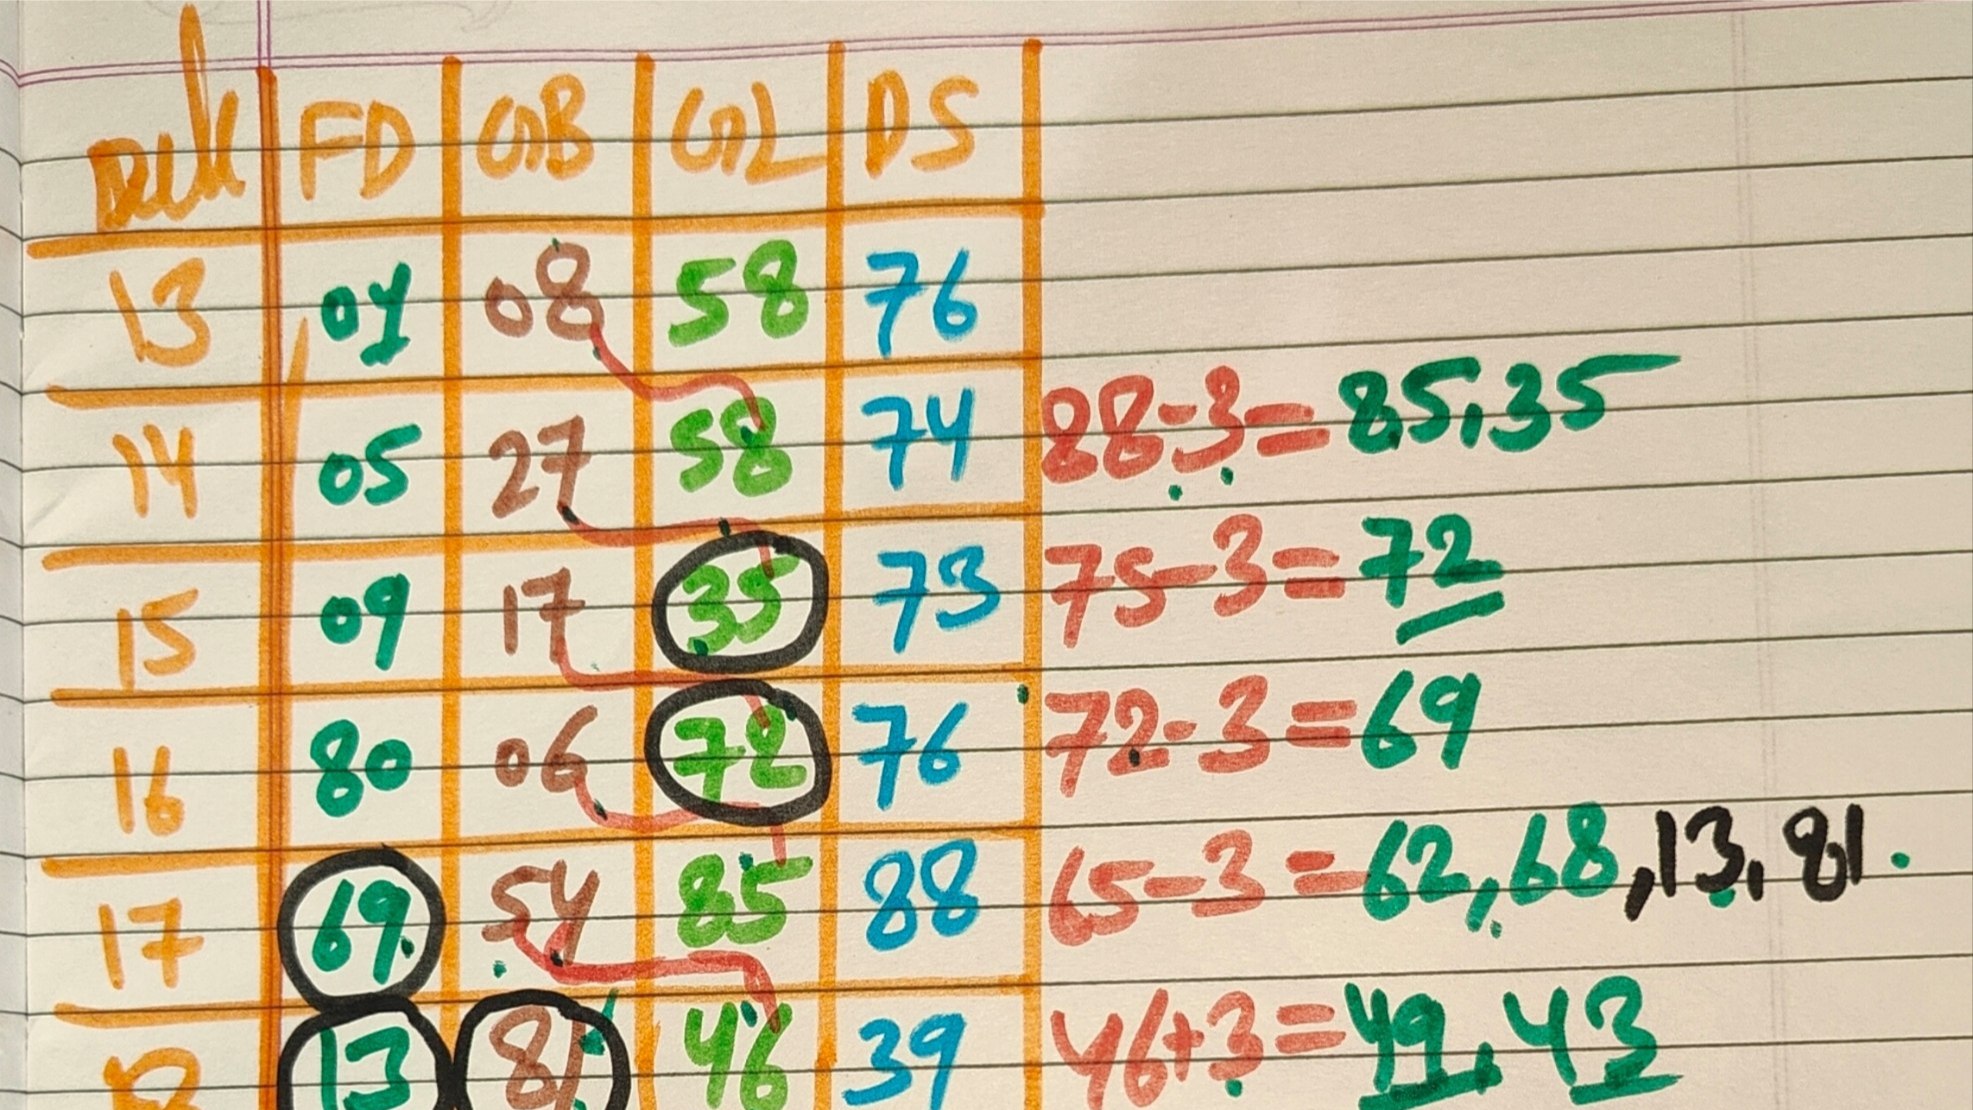 FD GB GL DS
13 04 08 58 76
14 05 27 58 74 88-3=85,35
15 09 17 35 73 75-3=72
16 80 06 72 76 72-3=69
17 69 54 85 88 65-3=62,68,13,81.
18 13 81 46 39 46+3=49,43